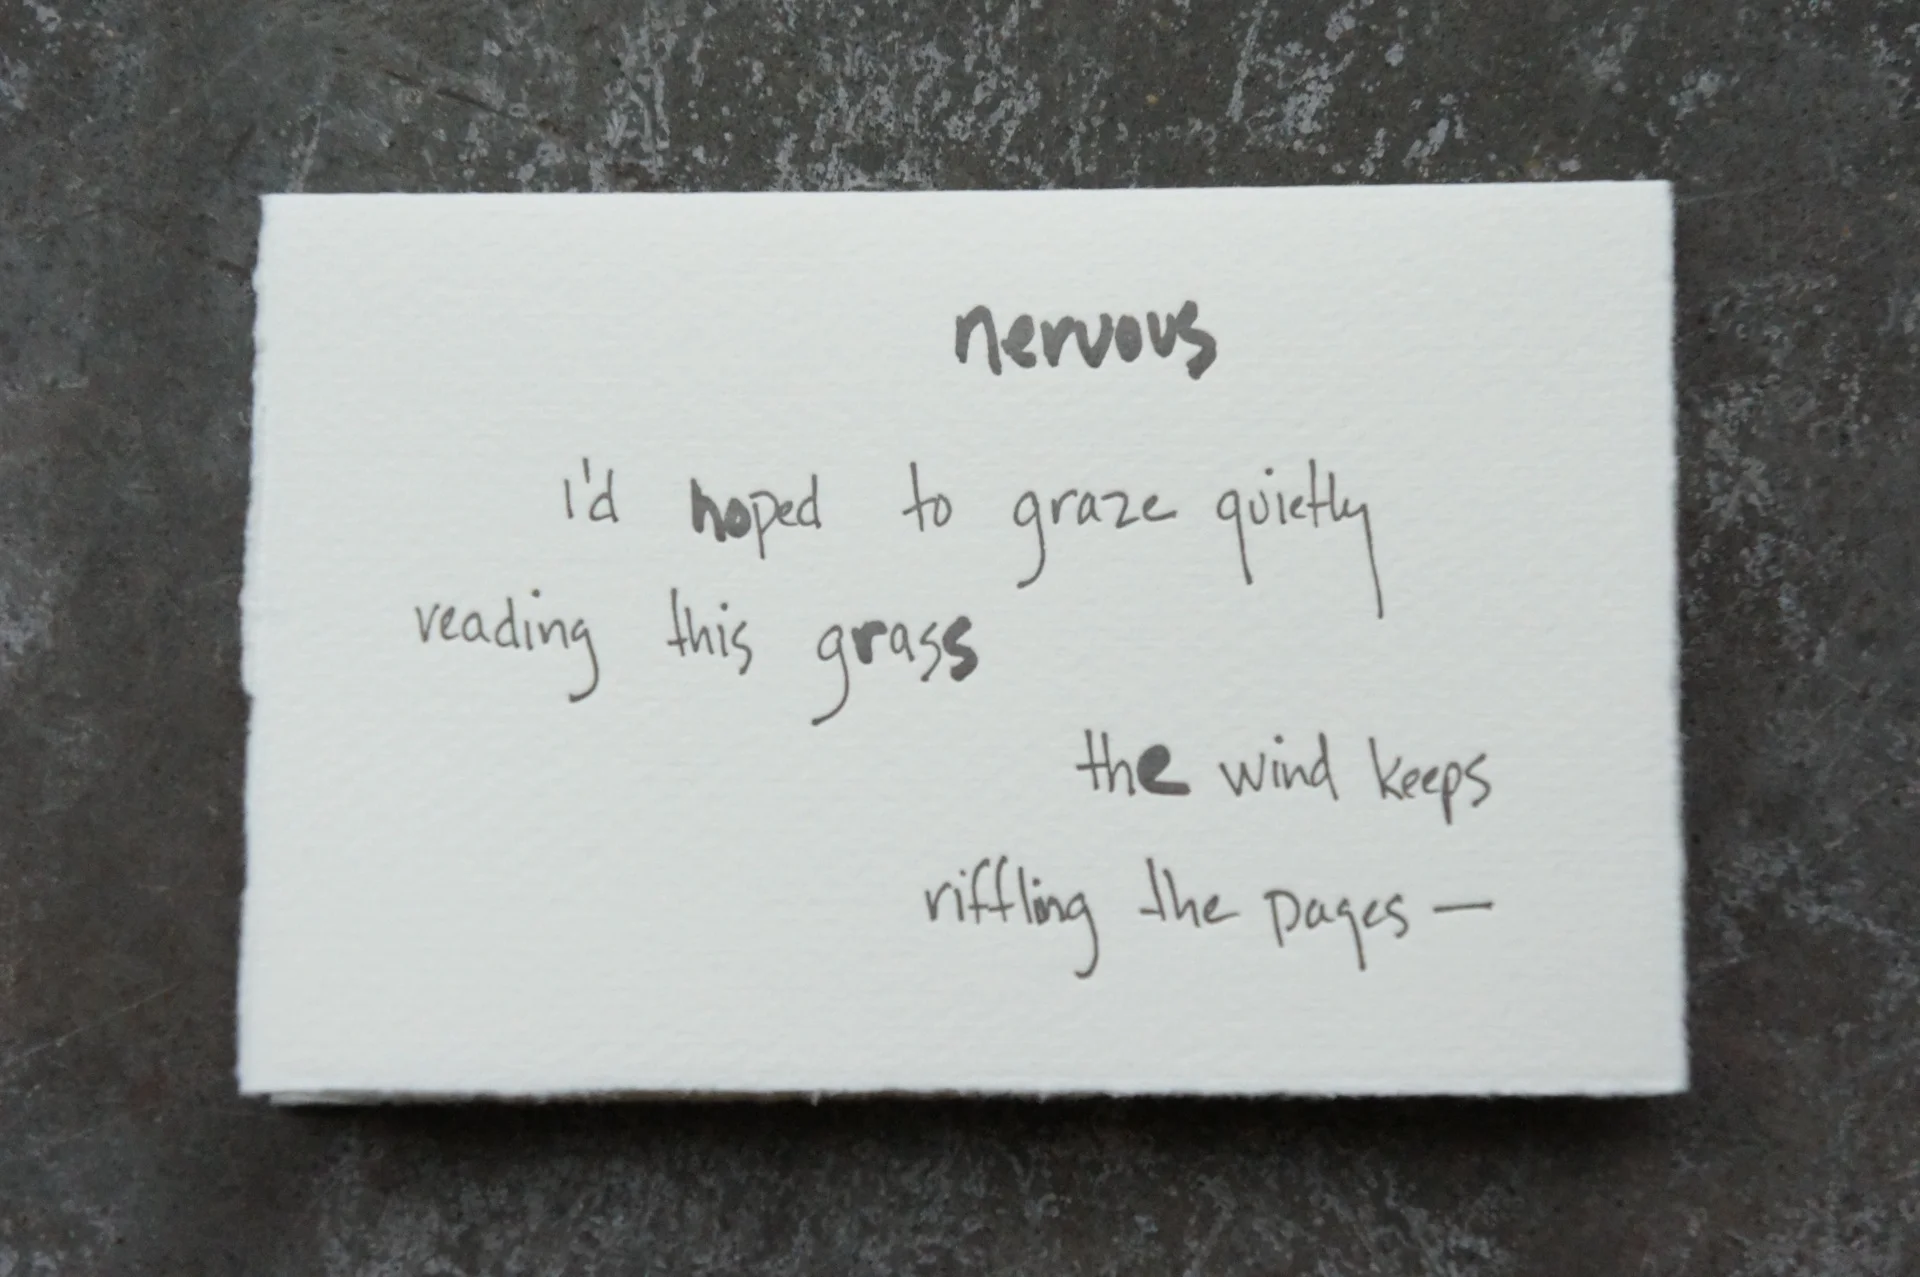 nervous
i'd hoped to graze quietly
reading this grass
the wind keeps
riffling the pages —